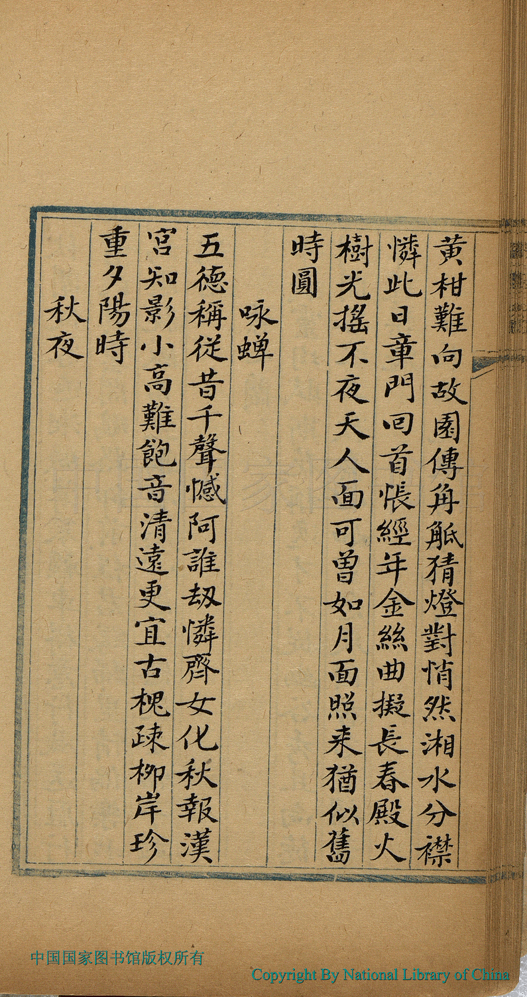 黄柑難向故園傳角觝猜燈對悄然湘水分襟
憐此日章門回首悵經年金絲曲擬長春殿火
樹光搖不夜天人面可曾如月面照来猶似舊
時圓
咏蝉
五德稱從昔千聲憾阿誰劫憐齊女化秋報漢
宮知影小高難飽音清遠更宜古槐疎柳岸珍
重夕陽時
秋夜
中国国家图书馆版权所有
Copyright By National Library of China